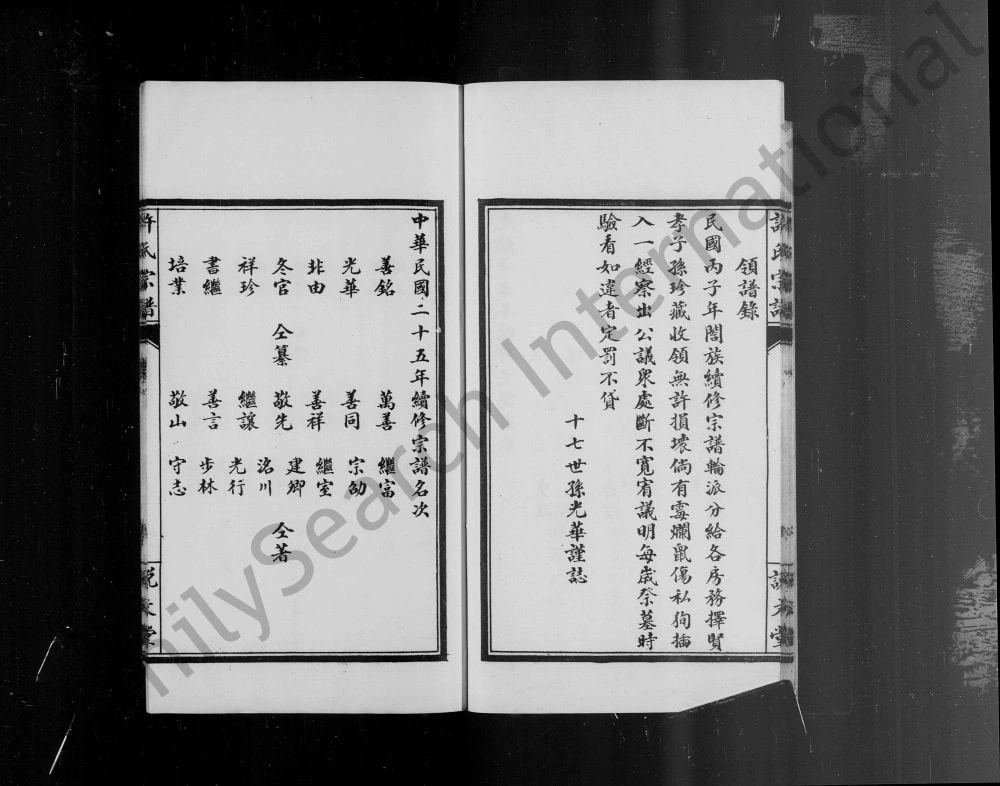 領譜錄
民國丙子年闔族續修宗譜輪派分給各房務擇賢
孝子孫珍藏收領無許損壞倘有霉爛鼠傷私狥描
入一經察出公議眾處斷不寬宥議明每歲祭墓時
驗看如違者定罰不貸
十七世孫光華謹誌
中華民國二十五年續修宗譜名次
善銘 萬善 繼富
光華 善同 宗劭
北由 善祥 繼室
冬官 仝纂 敬先 建卿 仝著
洺川
祥珍 繼讓 光行
書繼 善言 步林
培業 敬山 守志
許氏宗譜
悅來堂
FamilySearch International